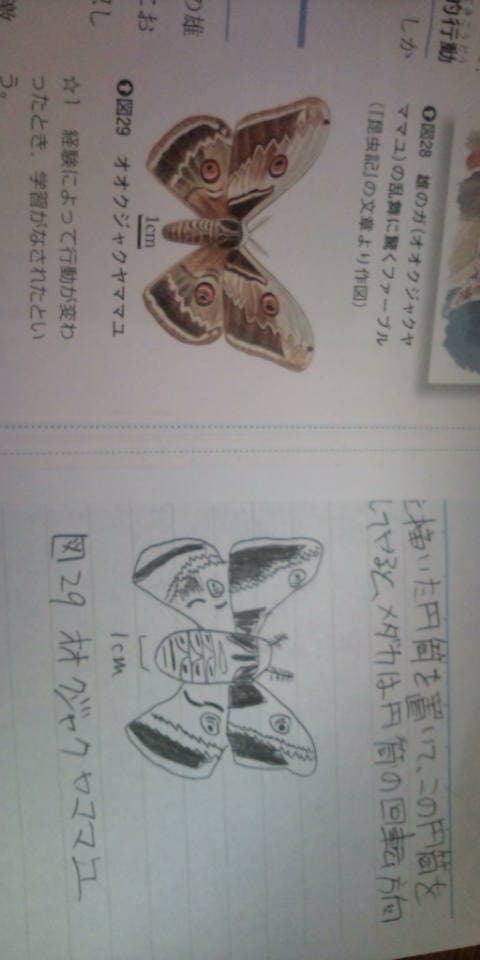 的行動
しか
の雄
にお
図28 雄のガ(オオクジャクヤ
ママユ)の乱舞に驚くファーブル
(『昆虫記』の文章より作図)
1cm
図29 オオクジャクヤママユ
☆1 経験によって行動が変わ
ったとき,学習がなされたとい
う。
描いた円筒を置いて、この円筒を
してやると、メダカは円筒の回転方向
1cm
図29 オオクジャクヤママユ